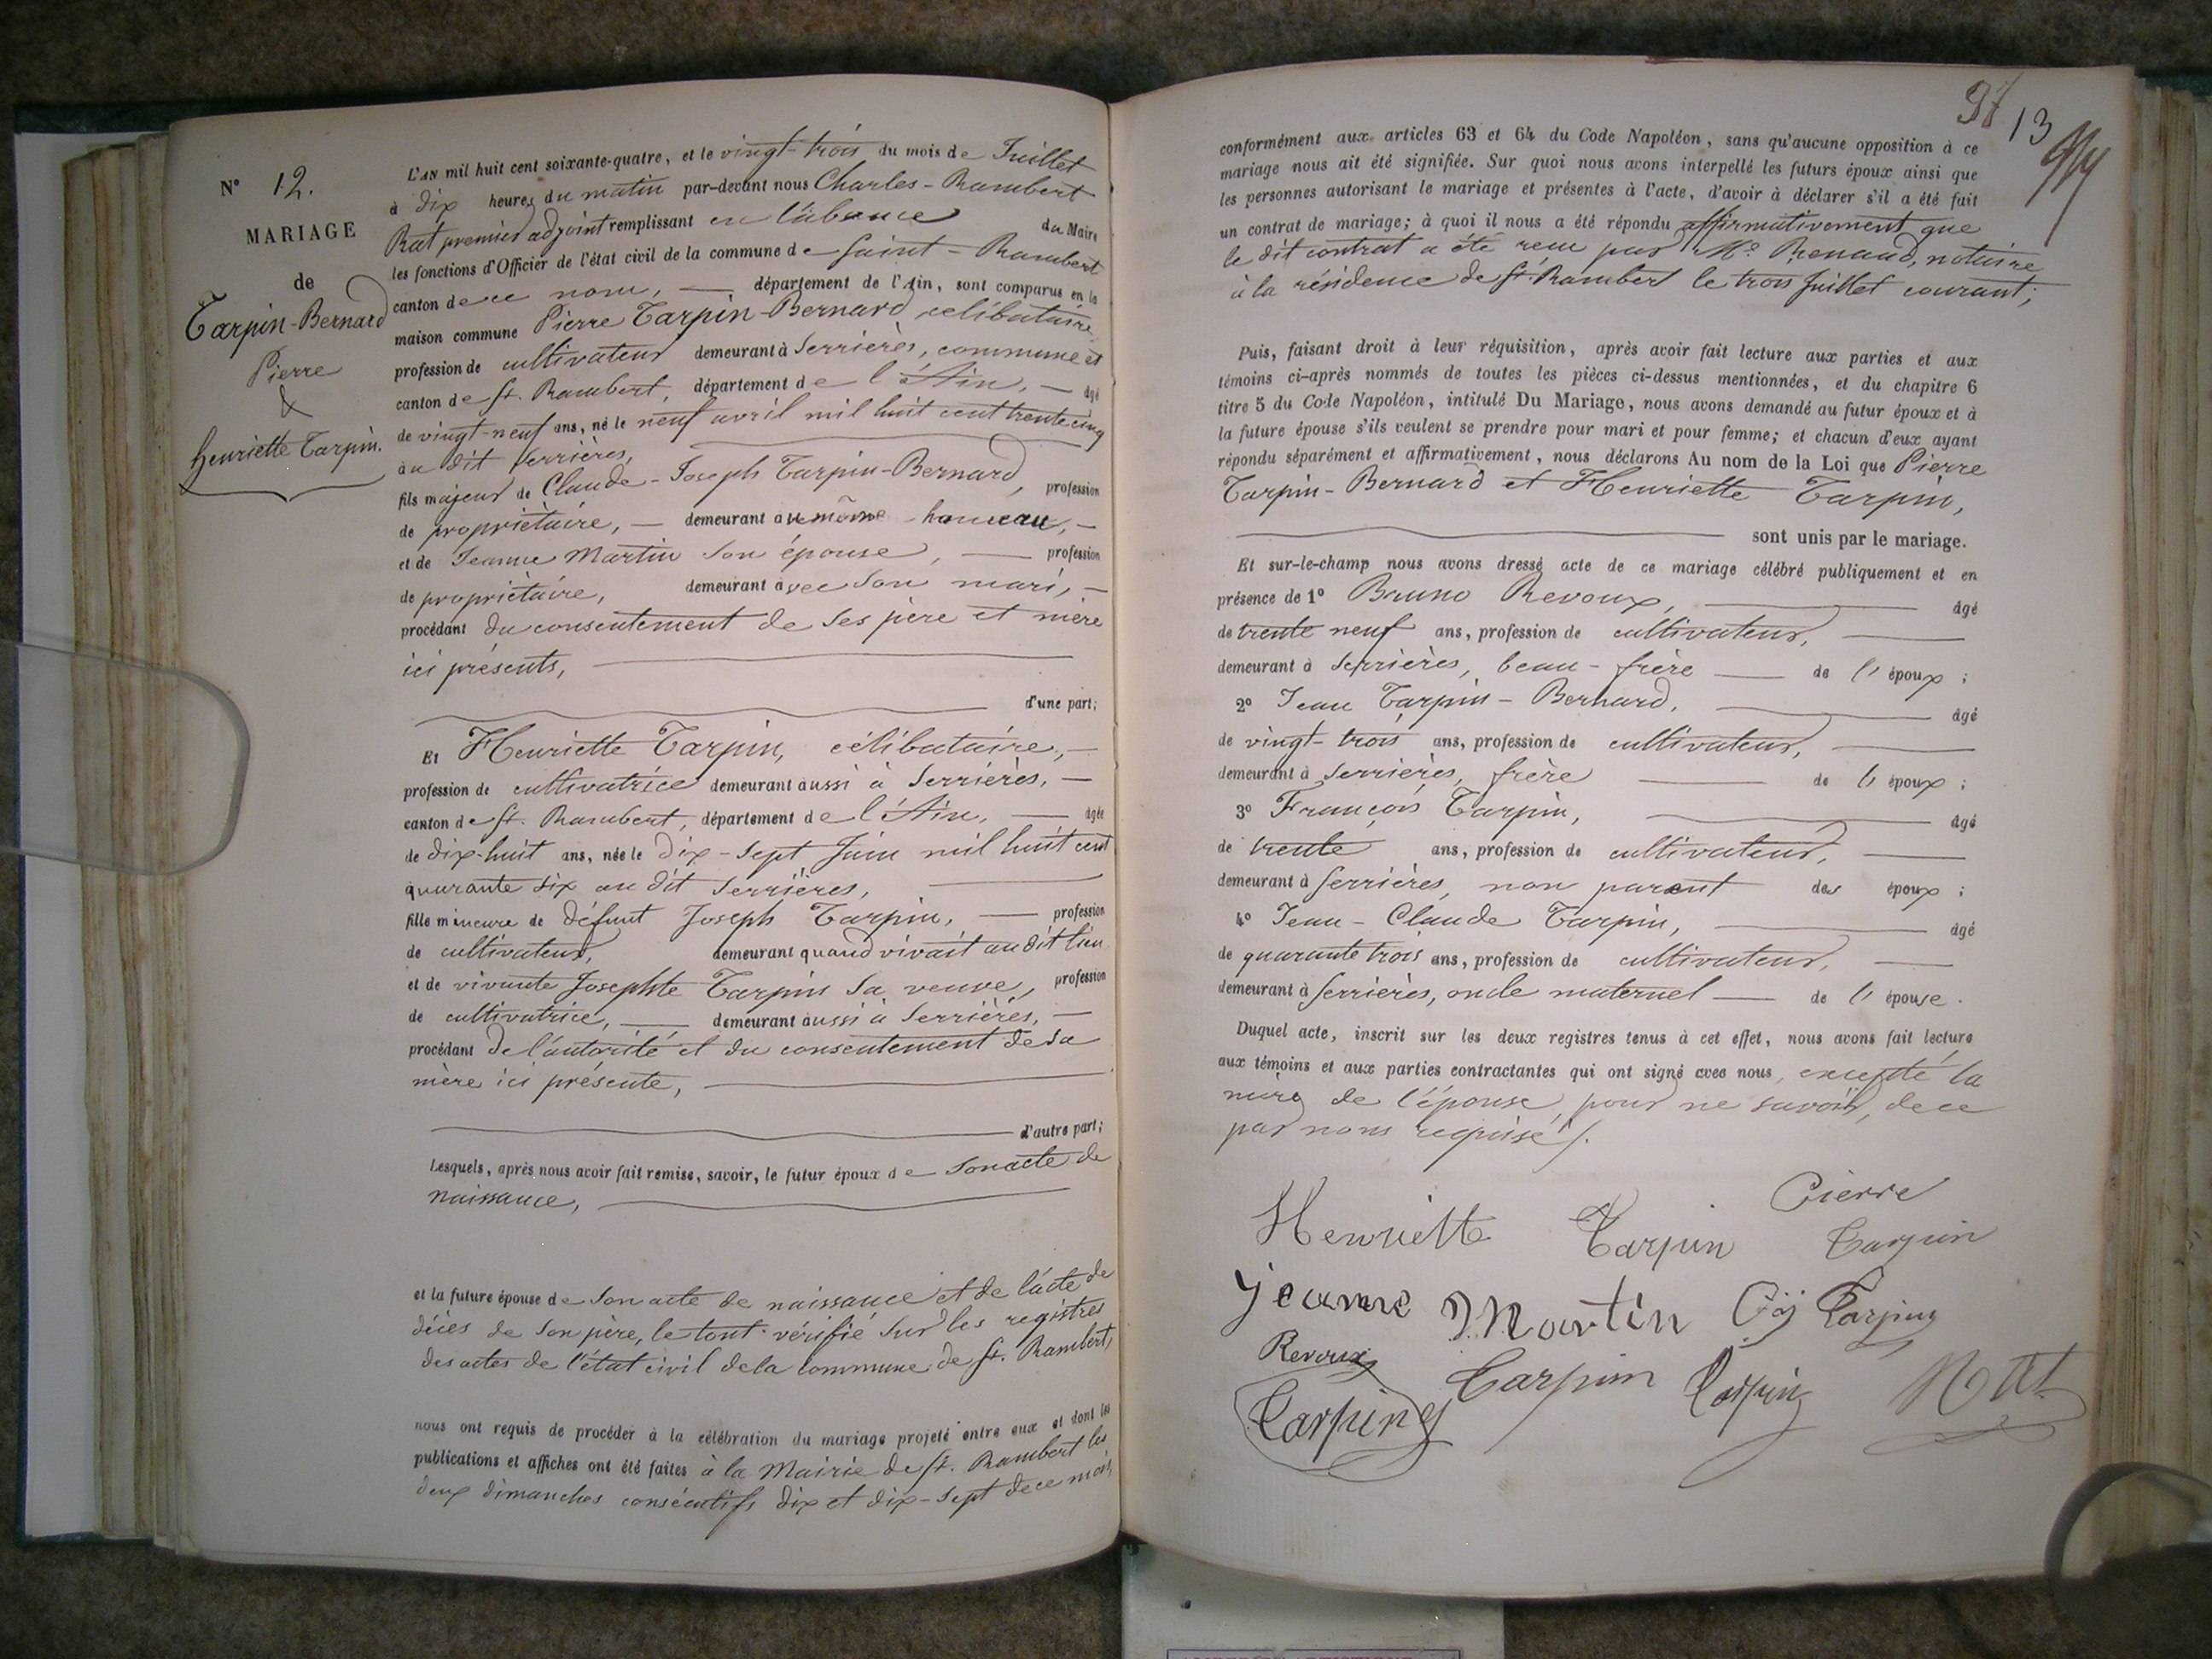 N° 12.
MARIAGE
de
Tarpin-Bernard
Pierre
&
Henriette Tarpin.
L'AN mil huit cent soixante-quatre, et le vingt-trois du mois de Juillet
à dix heures du matin par-devant nous Charles-Rambert
Rat premier adjoint remplissant en l'absence du Maire
les fonctions d'Officier de l'état civil de la commune de Saint-Rambert
canton de ce nom, département de l'Ain, sont comparus en la
maison commune Pierre Tarpin-Bernard célibataire
profession de cultivateur demeurant à Serrières, commune et
canton de St. Rambert, département de l'Ain, âgé
de vingt-neuf ans, né le neuf avril mil huit cent trente cinq
au dit Serrières,
fils majeur de Claude-Joseph Tarpin-Bernard, profession
de propriétaire, demeurant au même hameau,
et de Jeanne Martin son épouse, profession
de propriétaire, demeurant avec son mari,
procédant du consentement de ses père et mère
ici présents,
d'une part;
Et Henriette Tarpin, célibataire,
profession de cultivatrice demeurant aussi à Serrières,
canton de St. Rambert, département de l'Ain, âgée
de dix-huit ans, née le dix-sept Juin mil huit cent
quarante six au dit Serrières,
fille mineure de défunt Joseph Tarpin, profession
de cultivateur, demeurant quand vivait au dit lieu
et de vivante Josephte Tarpin sa veuve, profession
de cultivatrice, demeurant aussi à Serrières,
procédant de l'autorité et du consentement de sa
mère ici présente,
d'autre part;
Lesquels, après nous avoir fait remise, savoir, le futur époux de son acte de
naissance,
et la future épouse de son acte de naissance et de l'acte de
décès de son père, le tout vérifié sur les registres
des actes de l'état civil de la commune de St. Rambert,
nous ont requis de procéder à la célébration du mariage projeté entre eux et dont les
publications et affiches ont été faites à la Mairie de St. Rambert les
deux dimanches consécutifs dix et dix-sept de ce mois,
13
conformément aux articles 63 et 64 du Code Napoléon, sans qu'aucune opposition à ce
mariage nous ait été signifiée. Sur quoi nous avons interpellé les futurs époux ainsi que
les personnes autorisant le mariage et présentes à l'acte, d'avoir à déclarer s'il a été fait
un contrat de mariage; à quoi il nous a été répondu affirmativement que
le dit contrat a été reçu par Me. Renaud, notaire
à la résidence de St. Rambert le trois Juillet courant;
Puis, faisant droit à leur réquisition, après avoir fait lecture aux parties et aux
témoins ci-après nommés de toutes les pièces ci-dessus mentionnées, et du chapitre 6
titre 5 du Code Napoléon, intitulé Du Mariage, nous avons demandé au futur époux et à
la future épouse s'ils veulent se prendre pour mari et pour femme; et chacun d'eux ayant
répondu séparément et affirmativement, nous déclarons Au nom de la Loi que Pierre
Tarpin-Bernard et Henriette Tarpin,
sont unis par le mariage.
Et sur-le-champ nous avons dressé acte de ce mariage célébré publiquement et en
présence de 1° Bruno Revoux, âgé
de trente neuf ans, profession de cultivateur,
demeurant à Serrières, beau-frère de l'époux;
2° Jean Tarpin-Bernard, âgé
de vingt-trois ans, profession de cultivateur,
demeurant à Serrières, frère de l'époux;
3° François Tarpin, âgé
de trente ans, profession de cultivateur,
demeurant à Serrières, non parent des époux;
4° Jean-Claude Tarpin, âgé
de quarante trois ans, profession de cultivateur,
demeurant à Serrières, oncle maternel de l'épouse.
Duquel acte, inscrit sur les deux registres tenus à cet effet, nous avons fait lecture
aux témoins et aux parties contractantes qui ont signé avec nous, excepté la
mère de l'épouse, pour ne savoir, de ce
par nous requise.
Pierre
Henriette Tarpin Tarpin
jeanne Martin Tarpin
Revoux
Tarpin Tarpin Tarpin